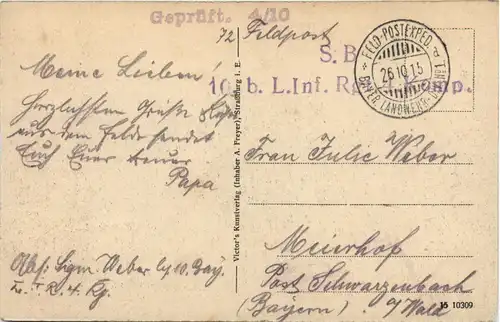 Geprüft. 4/10
72 Feldpost
S.B.
10. b. L.Inf. Rgt. Komp.
FELD-POSTEXPED. d.
26 10 15
BAYER. LANDWEHR-DIV.
Meine Lieben!
Herzlichsten Grüße
aus dem Felde sendet
Euch Euer treuer
Papa
Frau Julie Weber
Meierhof
Post Schwarzenbach
(Bayern) a/Wald
Abs: Ligm. Weber bey 10. Bay.
L. I. R. 4. Kp.
Victor's Kunstverlag (Inhaber A. Freyer), Strassburg i. E.
15 10309